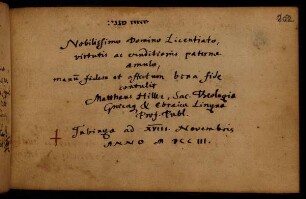 262.
Nobilissimo Domino Licentiato,
virtutis ac eruditionis paternae
aemulo,
manū fidem et affectum bona fide
contulit
Matthaeus Hiller, Sac. Theologiae
Graecaq. & Ebraicae Linguae
Prof. Publ.
Tubingae ad XVIII. Novembris
ANNO M DCC III.